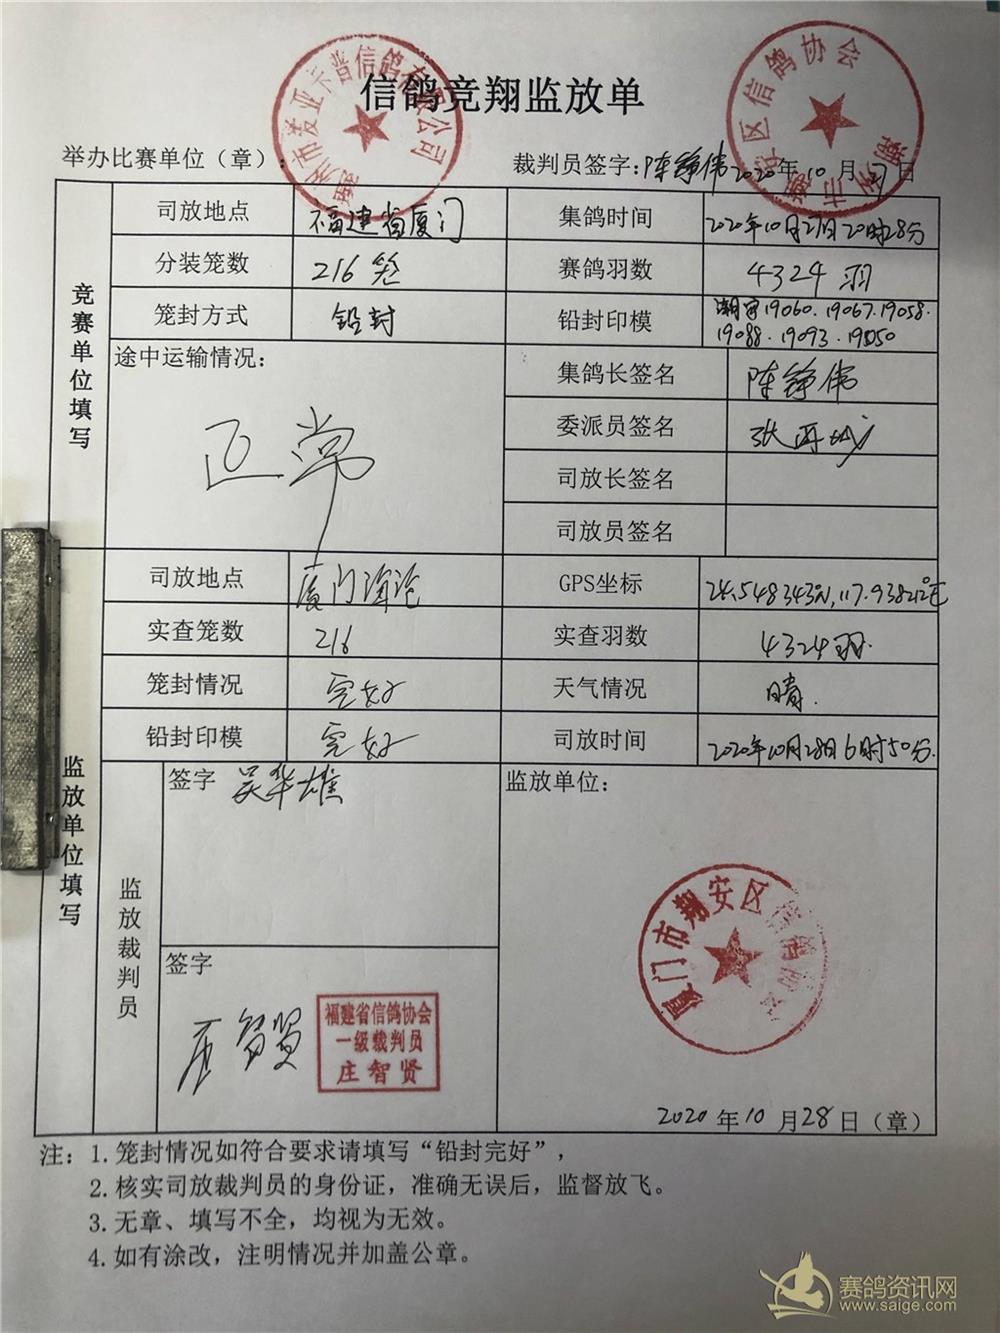 信鸽竞翔监放单
举办比赛单位（章）：
裁判员签字：陈铮伟 2020年10月27日
竞赛单位填写
司放地点 福建省厦门 集鸽时间 2020年10月27日20时28分
分装笼数 216笼 赛鸽羽数 4324羽
笼封方式 铅封 铅封印模 19060．19067．19058．
19088．19093．19050
途中运输情况： 集鸽长签名 陈铮伟
正常 委派员签名
司放长签名
司放员签名
监放单位填写
司放地点 厦门 GPS坐标 24.548343°N,117.938212°E
实查笼数 216 实查羽数 4324羽.
笼封情况 完好 天气情况 晴.
铅封印模 完好 司放时间 2020年10月28日6时50分.
监放裁判员
签字 吴华雄 监放单位：
厦门市翔安区信鸽协会
签字
庄智贤
福建省信鸽协会
一级裁判员
庄智贤
2020年10月28日（章）
注：1.笼封情况如符合要求请填写“铅封完好”，
2.核实司放裁判员的身份证，准确无误后，监督放飞。
3.无章、填写不全，均视为无效。
4.如有涂改，注明情况并加盖公章。
赛鸽资讯网
www.saige.com